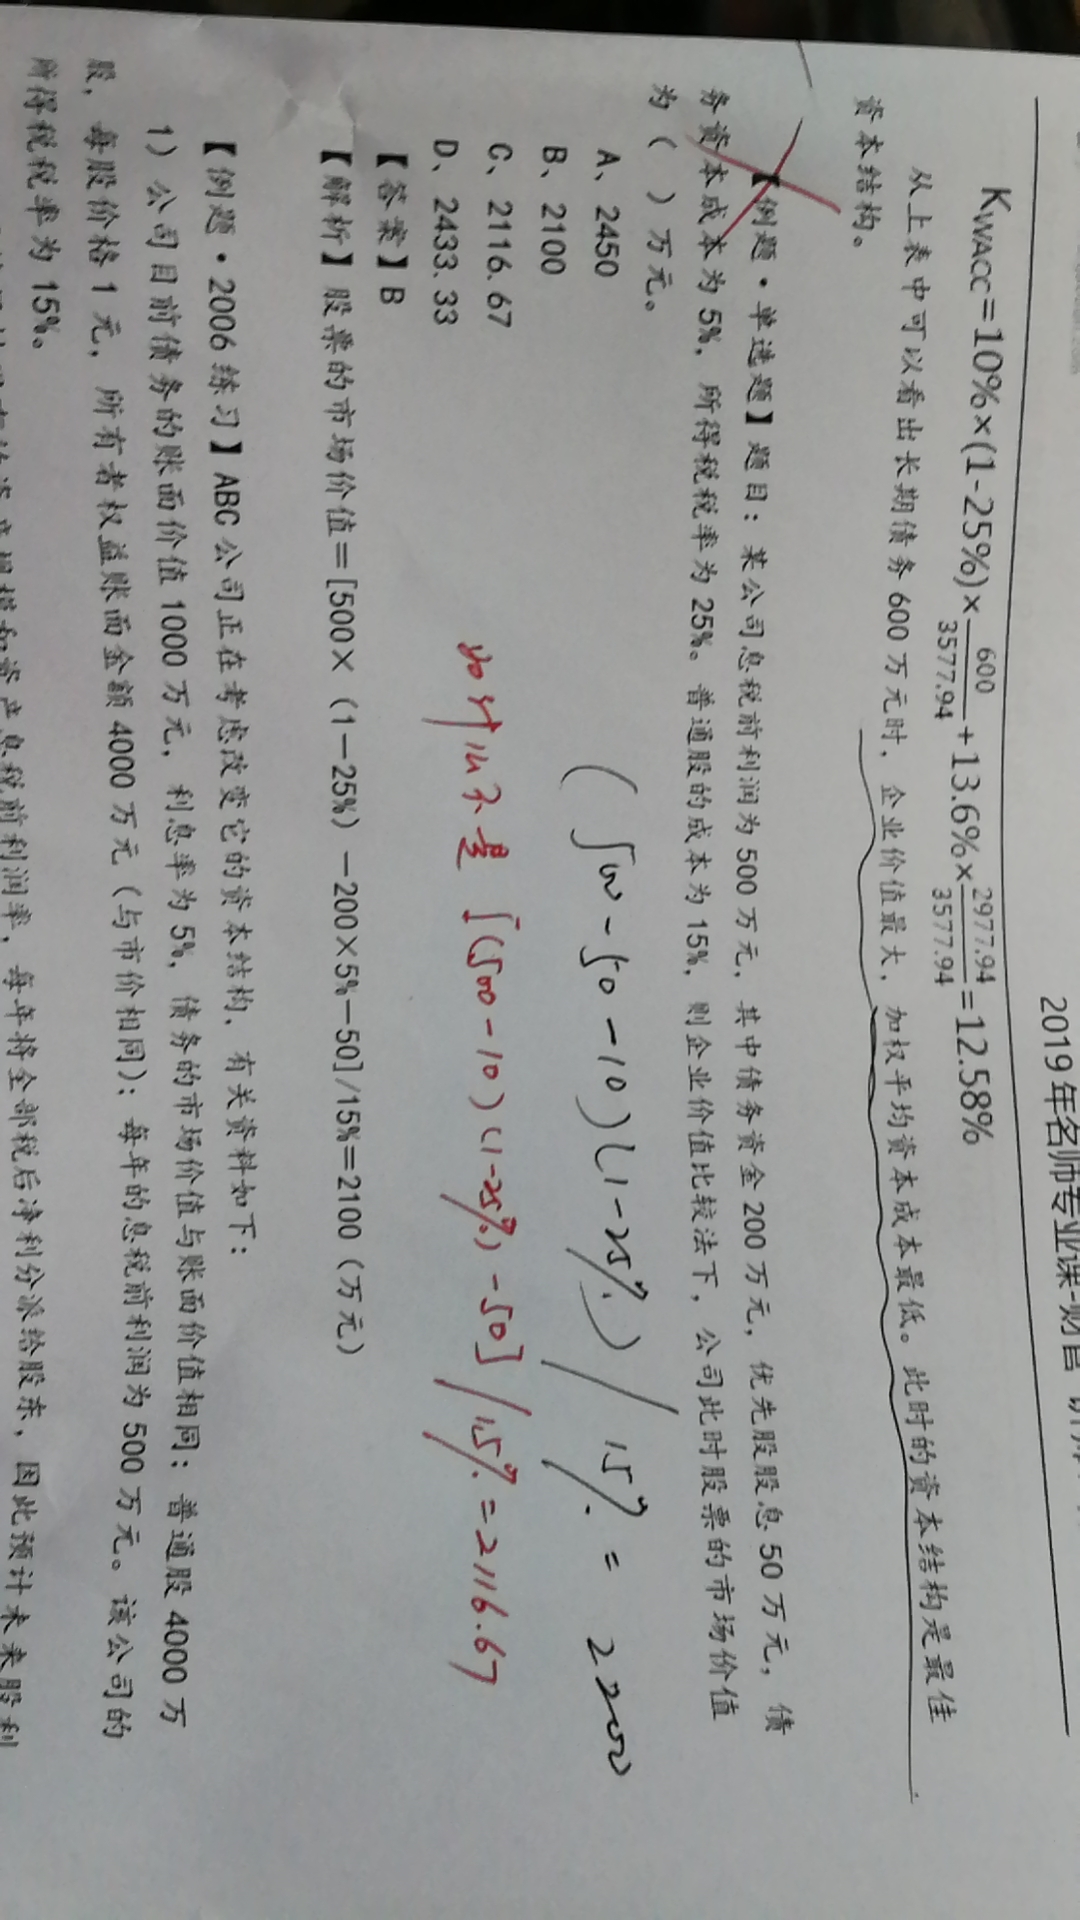 2019年名师专业课-财管
K_WACC=10%×(1-25%)×600/3577.94+13.6%×2977.94/3577.94=12.58%
从上表中可以看出长期债务 600 万元时，企业价值最大，加权平均资本成本最低。此时的资本结构是最佳
资本结构。
【例题·单选题】题目：某公司息税前利润为 500 万元，其中债务资金 200 万元，优先股股息 50 万元，债
务资本成本为 5%，所得税税率为 25%。普通股的成本为 15%，则企业价值比较法下，公司此时股票的市场价值
为（ ）万元。
A、2450
B、2100
C、2116.67
D、2433.33
(500-50-10)(1-25%)/15%=2200
为什么不是[(500-10)(1-25%)-50]/15%=2116.67
【答案】B
【解析】股票的市场价值＝[500×（1－25%）－200×5%－50]/15%＝2100（万元）
【例题·2006 练习】ABC 公司正在考虑改变它的资本结构，有关资料如下：
1）公司目前债务的账面价值 1000 万元，利息率为 5%，债务的市场价值与账面价值相同；普通股 4000 万
股，每股价格 1 元，所有者权益账面金额 4000 万元（与市价相同）；每年的息税前利润为 500 万元。该公司的
所得税税率为 15%。
息税前利润率，每年将全部税后净利分派给股东，因此预计未来股利